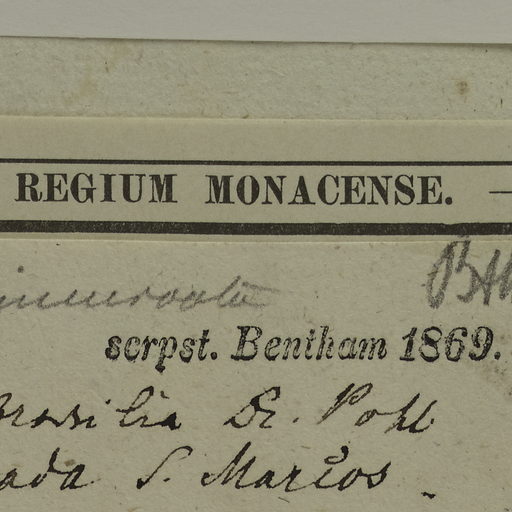 REGIUM MONACENSE. —
BH
scrpst. Bentham 1869.
Brasilia Dr. Pohl
ada S. Marcos